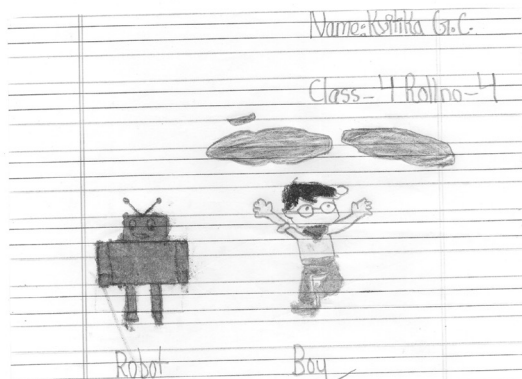 Name:Kritika G.C.
Class-4 Rollno-4
Robot
Boy